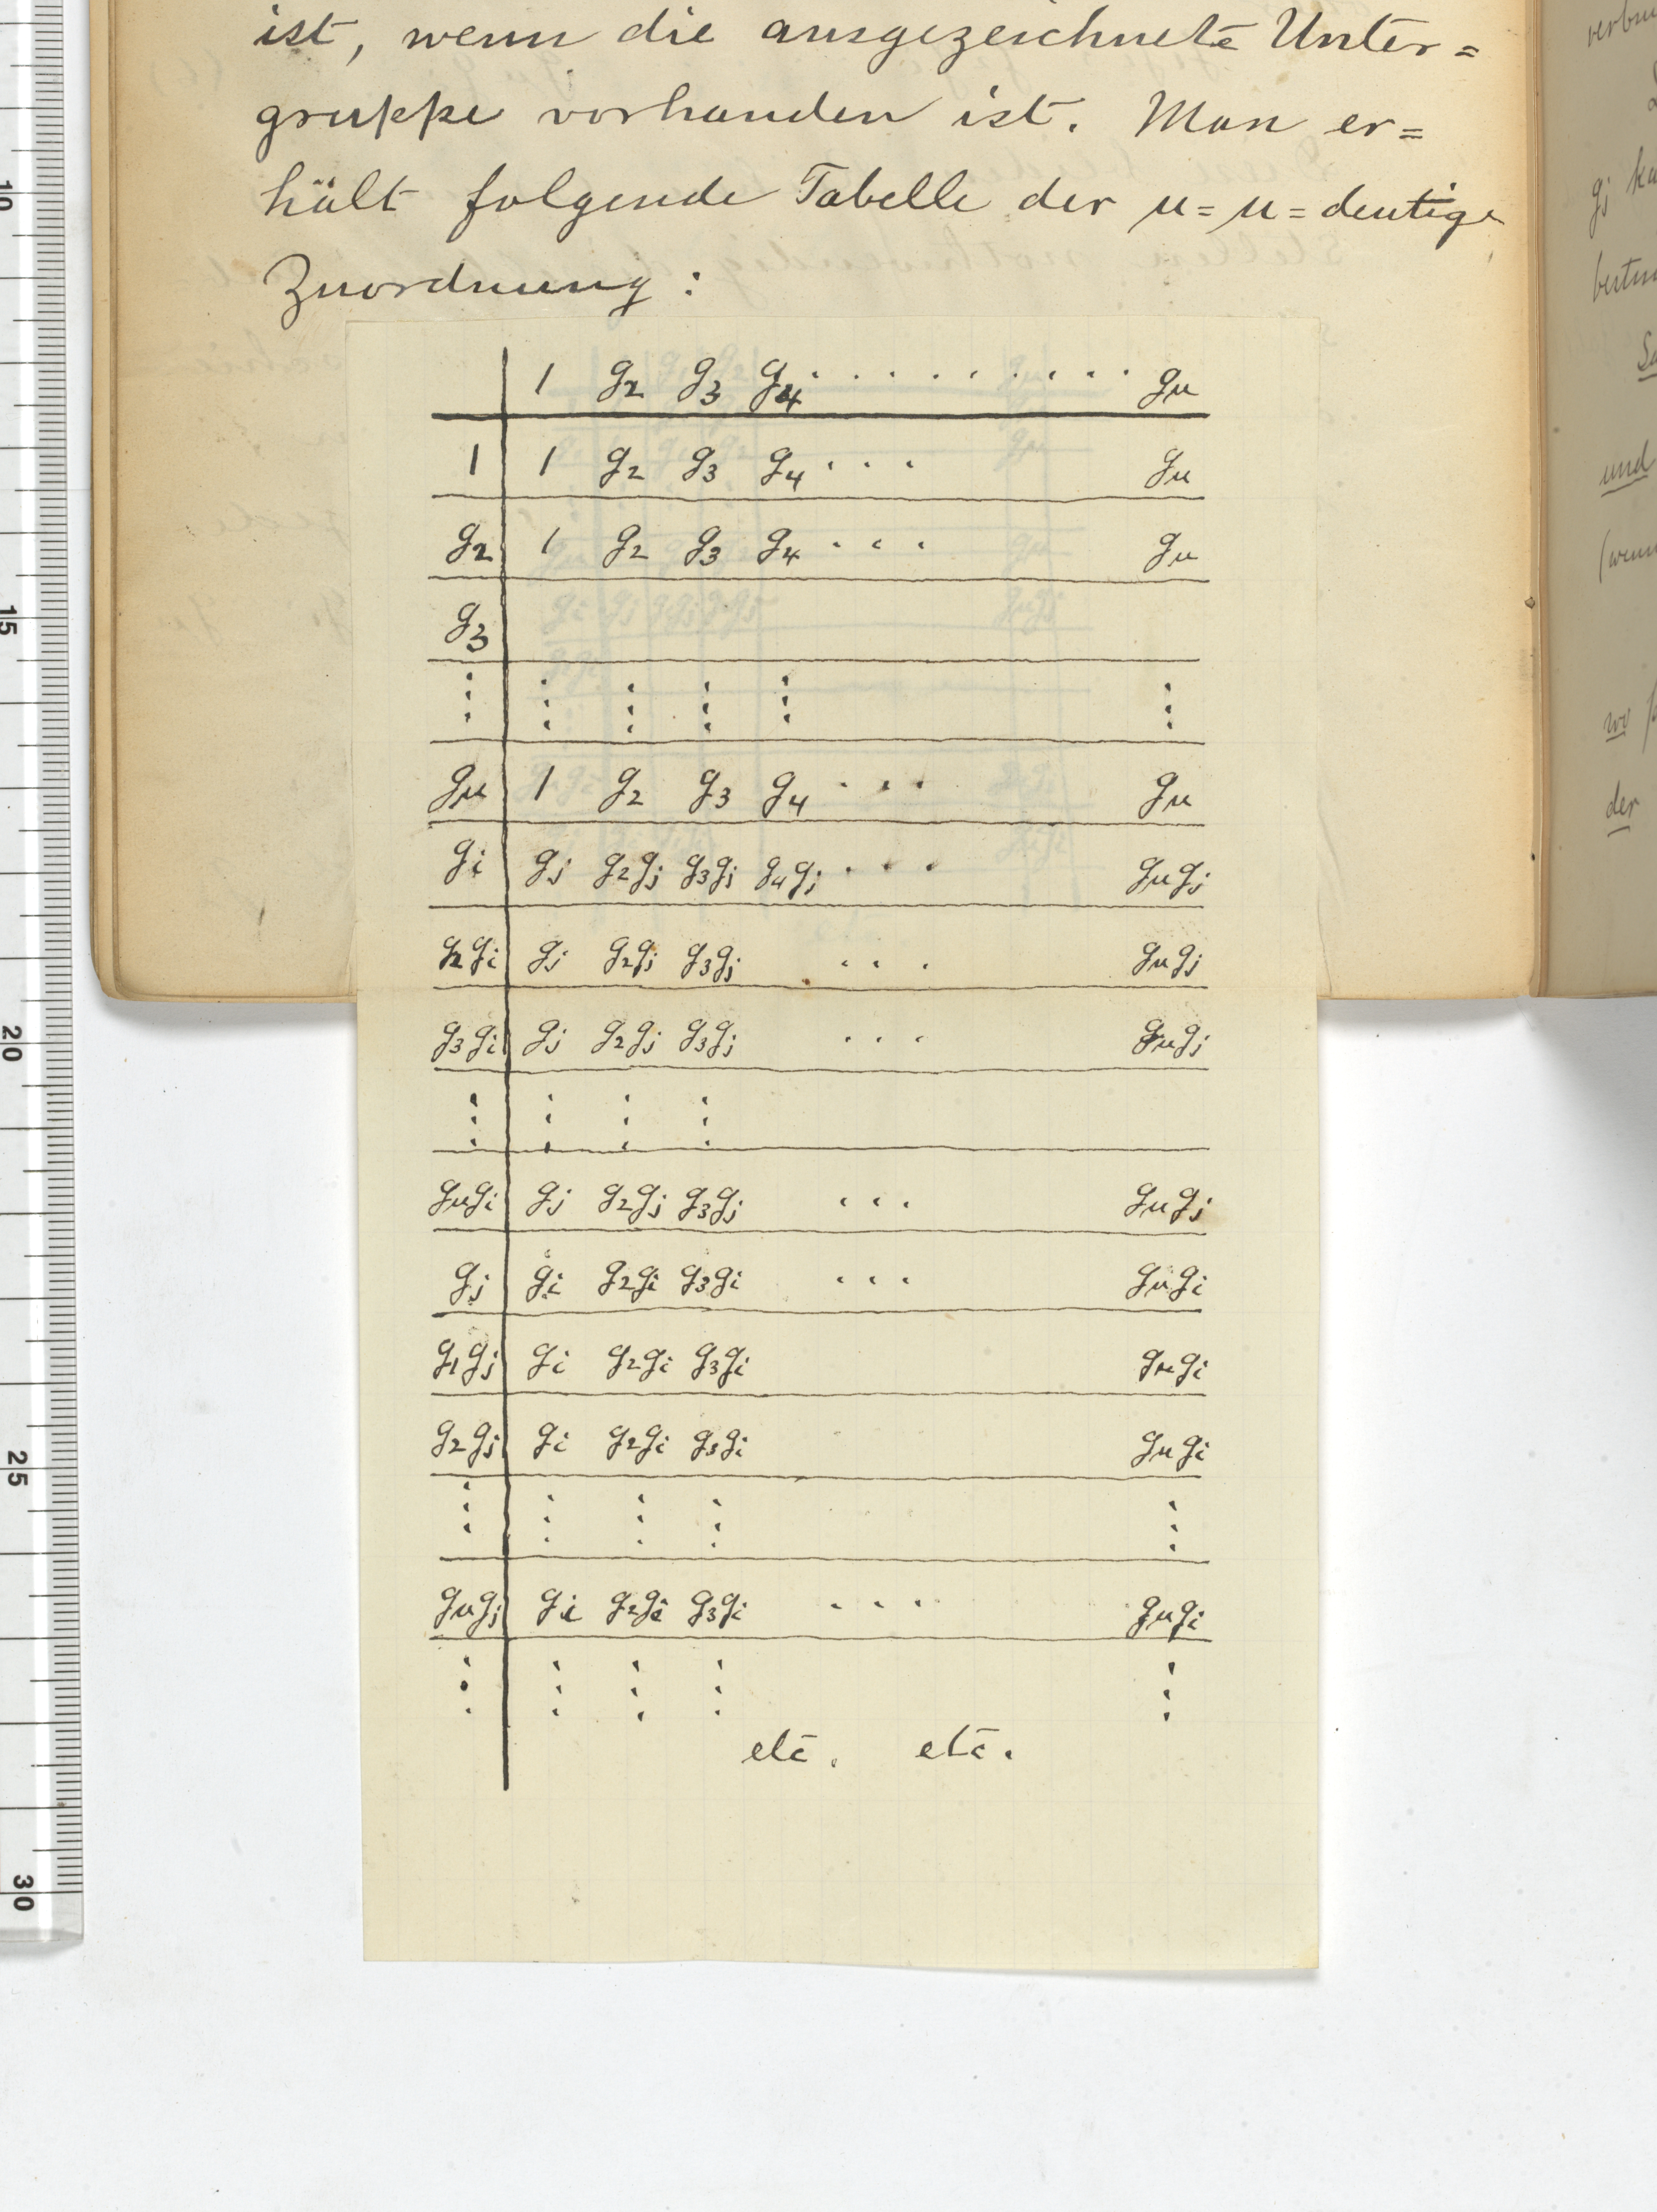 ist, wenn die ausgezeichnete Unter=
gruppe vorhanden ist. Man er=
hält folgende Tabelle der u=u=deutige
Zuordnung:
1 g2 g3 g4 . . . . . . . . . gu
1 1 g2 g3 g4 . . . gu
g2 1 g2 g3 g4 . . . gu
g3
⋮ ⋮ ⋮ ⋮ ⋮ ⋮
gu 1 g2 g3 g4 . . . gu
gi gj g2gj g3gj g4gj . . . gugj
g2gi gj g2gj g3gj . . . gugj
g3gi gj g2gj g3gj . . . gugj
⋮ ⋮ ⋮ ⋮
gugi gj g2gj g3gj . . . gugj
gj gi g2gi g3gi . . . gugi
g1gj gi g2gi g3gi gugi
g2gj gi g2gi g3gi gugi
⋮ ⋮ ⋮ ⋮ ⋮
gugj gi g2gi g3gi . . . gugi
⋮ ⋮ ⋮ ⋮ ⋮
etc. etc.
10
15
20
25
30
gj
und
der